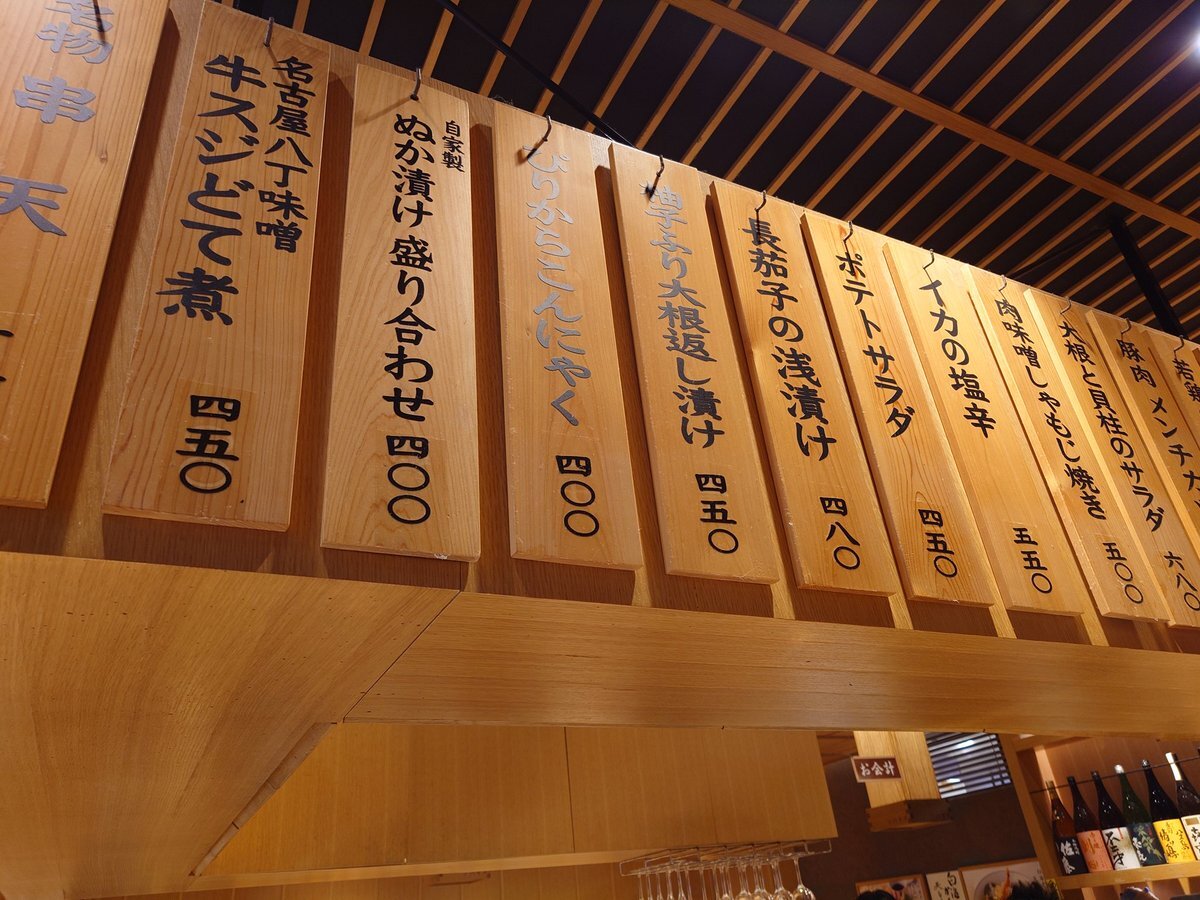 串天
名古屋八丁味噌
牛スジどて煮
四五〇
自家製
ぬか漬け 盛り合わせ
四〇〇
ぴりからこんにゃく
四〇〇
柚子ふり大根返し漬け
四五〇
長茄子の浅漬け
四八〇
ポテトサラダ
四五〇
イカの塩辛
五五〇
肉味噌しゃもじ焼き
五〇〇
大根と貝柱のサラダ
六八〇
豚肉 メンチカ
若鶏
お会計